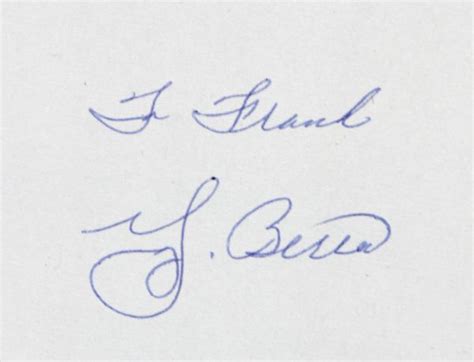 To Frank
Y. Berra